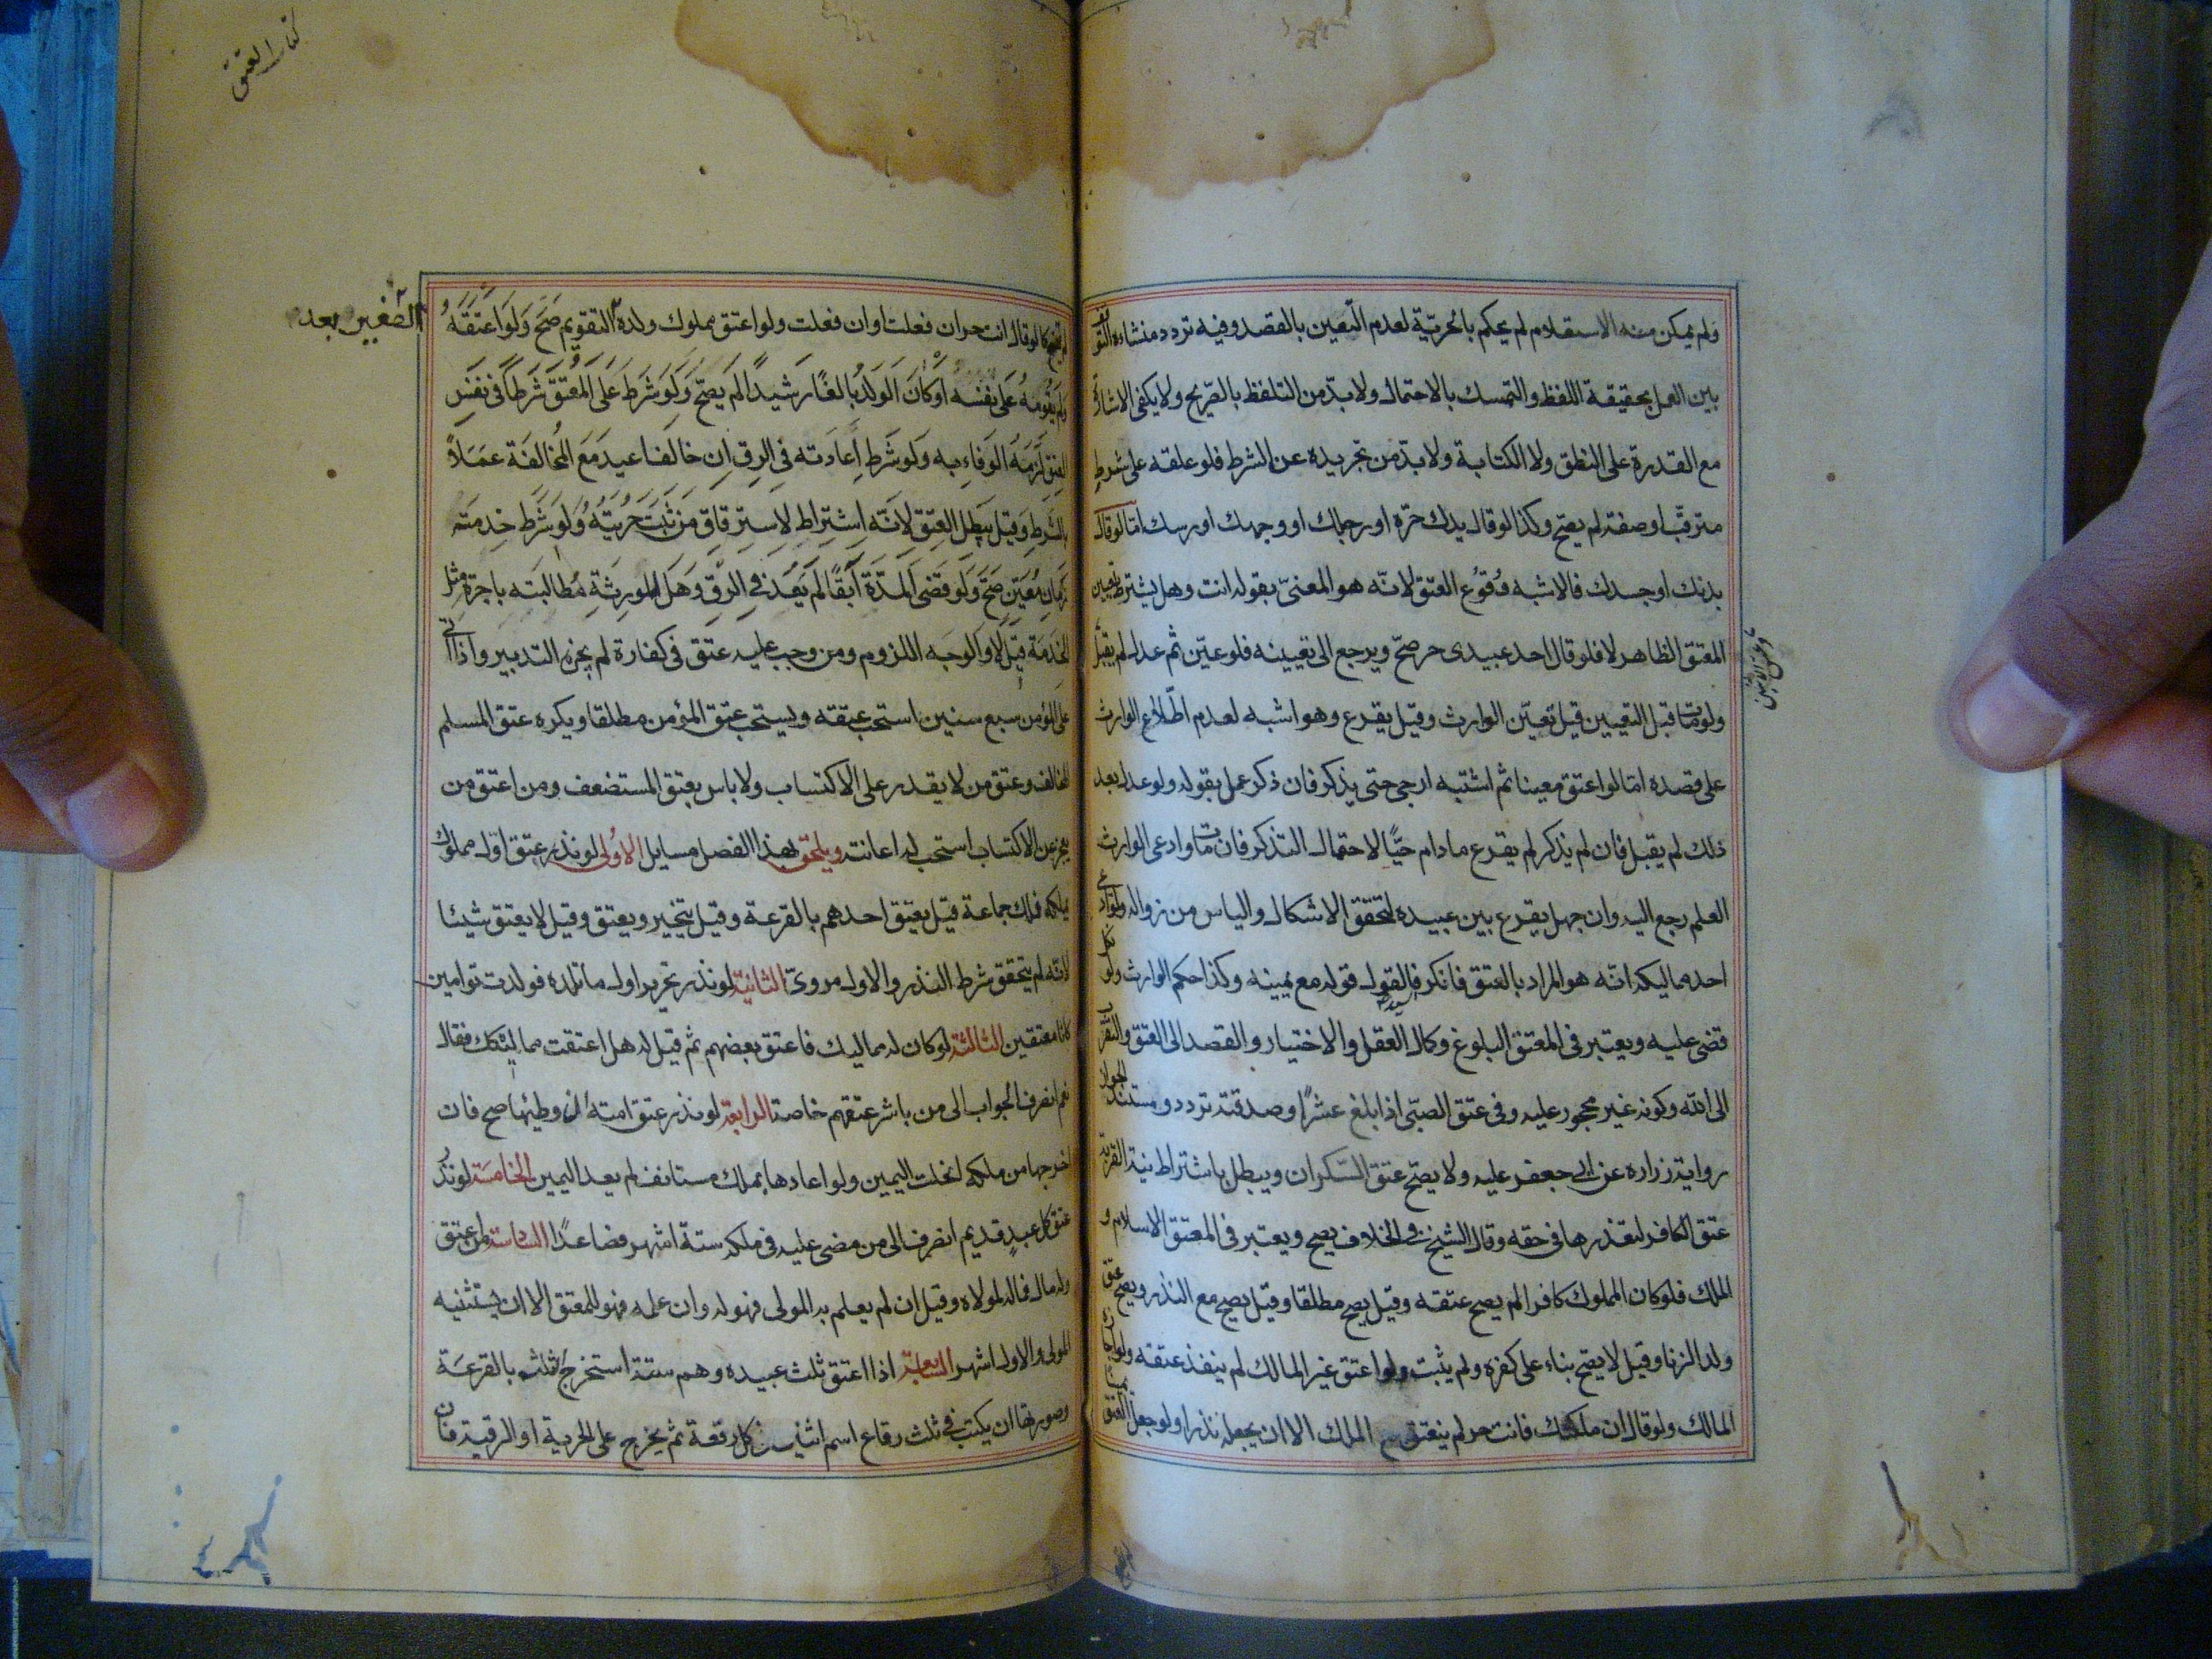 ولم يمكن منه الاستعلام لم يحكم بالحرية لعدم التعين بالقصد وفيه تردد منشاءه التو
بين العمل بحقيقة اللفظ والتمسك بالاحتمال ولا بد من التلفظ بالصريح ولا يكفى الاشارة
مع القدرة على النطق ولا الكتابة ولا بد من تجريده عن الشرط فلو علقه على شرط
مترقب او صفة لم يصح وكذا لو قال يدك حرة او رجلك او وجهك او رسك اما لو قال
بدنك او جسدك فالاشبه وقوع العتق لانه هو المعنى بقوله انت وهل يشترط تعيين
المعتق الظاهر لا فلو قال احد عبيدى حر صح ويرجع الى تعيينه فلو عين ثم عدل لم يقبل
ولو مات قبل التعيين قيل تعين الوارث وقيل يقرع وهو اشبه لعدم اطلاع الوارث
على قصده اما لو اعتق معينا ثم اشتبه ارجى حتى يذكر فان ذكر عمل بقوله ولو عدل بعد
ذلك لم يقبل فان لم يذكر لم يقرع مادام حيا لاحتمال التذكر فان مات وادعى الوارث
العلم رجع اليه وان جهل يقرع بين عبيده لتحقق الاشكال والياس من زواله ولو ادعى
احد مماليكه انه هو المراد بالعتق فانكر فالقول قوله مع يمينه وكذا حكم الوارث ولو نكل
قضى عليه ويعتبر فى المعتق البلوغ وكمال العقل والاختيار والقصد الى العتق والتقرب
الى الله وكونه غير محجور عليه وفى عتق الصبى اذا بلغ عشرا وصدقته تردد ومستند الجواز
رواية زراره عن ابى جعفر عليه ولا يصح عتق السكران ويبطل باشتراط نية القربة
عتق الكافر لتعذرها فى حقه وقال الشيخ فى الخلاف يصح ويعتبر فى المعتق الاسلام و
الملك فلو كان المملوك كافرا لم يصح عتقه وقيل يصح مطلقا وقيل يصح مع النذر ويصح عتق
ولد الزنا وقيل لا يصح بناء على كفره ولم يثبت ولو اعتق غير المالك لم ينفذ عتقه ولو اجاز
المالك ولو قال ان ملكتك فانت حر لم ينعتق مع الملك الا ان يجعله نذرا ولو جعل العتق
كتاب العتق
الصغير بعد
لم يقع كما لو قال انت حر ان فعلت او ان فعلت ولو اعتق مملوك ولده التقويم صح ولو اعتقه
ولم يقومه على نفسه او كان الولد بالغا رشيدا لم يصح ولو شرط على المعتق شرطا فى نفس
العتق لزمه الوفاء به ولو شرط اعادته فى الرق ان خالف اعيد مع المخالفة عملا
بالشرط وقيل يبطل العتق لانه اشتراط لاسترقاق من ثبت حريته ولو شرط خدمته
زمان معين صح ولو قضى المدة آبقا لم يعد فى الرق وهل للورثة مطالبته باجرة مثل
الخدمة قيل لا والوجه اللزوم ومن وجب عليه عتق فى كفارة لم يجزه التدبير واذا اتى
على المؤمن سبع سنين استحب عتقه ويستحب عتق المؤمن مطلقا ويكره عتق المسلم
المخالف وعتق من لا يقدر على الاكتساب ولا باس بعتق المستضعف ومن اعتق من
يعجز عن الاكتساب استحب له اعانته ويلحق بهذا الفصل مسايل الاولى لو نذر عتق اول مملوك
يملكه فملك جماعة قيل يعتق احدهم بالقرعة وقيل يتخير ويعتق وقيل لا يعتق شيئا
لانه لم يتحقق شرط النذر والاول مروى الثانية لو نذر تحرير اول ما تلده فولدت توامين
كانا معتقين الثالثة لو كان له مماليك فاعتق بعضهم ثم قيل له هل اعتقت مماليكك فقال
نعم انصرف الجواب الى من باشر عتقهم خاصة الرابعة لو نذر عتق امته ان وطيها صح فان
اخرجها من ملكه انحلت اليمين ولو اعادها بملك مستانف لم يعد اليمين الخامسة لو نذر
عتق كل عبد قديم انصرف الى من مضى عليه فى ملكه ستة اشهر فصاعدا السادسة من اعتق
وله مال فماله لمولاه وقيل ان لم يعلم به المولى فهو له وان علمه فهو للمعتق الا ان يستثنيه
المولى والاول اشهر السابعة اذا اعتق ثلث عبيده وهم ستة استخرج الثلث بالقرعة
وصورتها ان يكتب فى ثلث رقاع اسم اثنين فى كل رقعة ثم يخرج على الحرية او الرقية فان